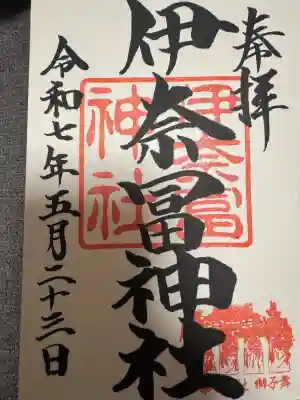 奉拝
伊奈冨神社
伊奈冨
神社
令和七年五月二十三日
獅子舞